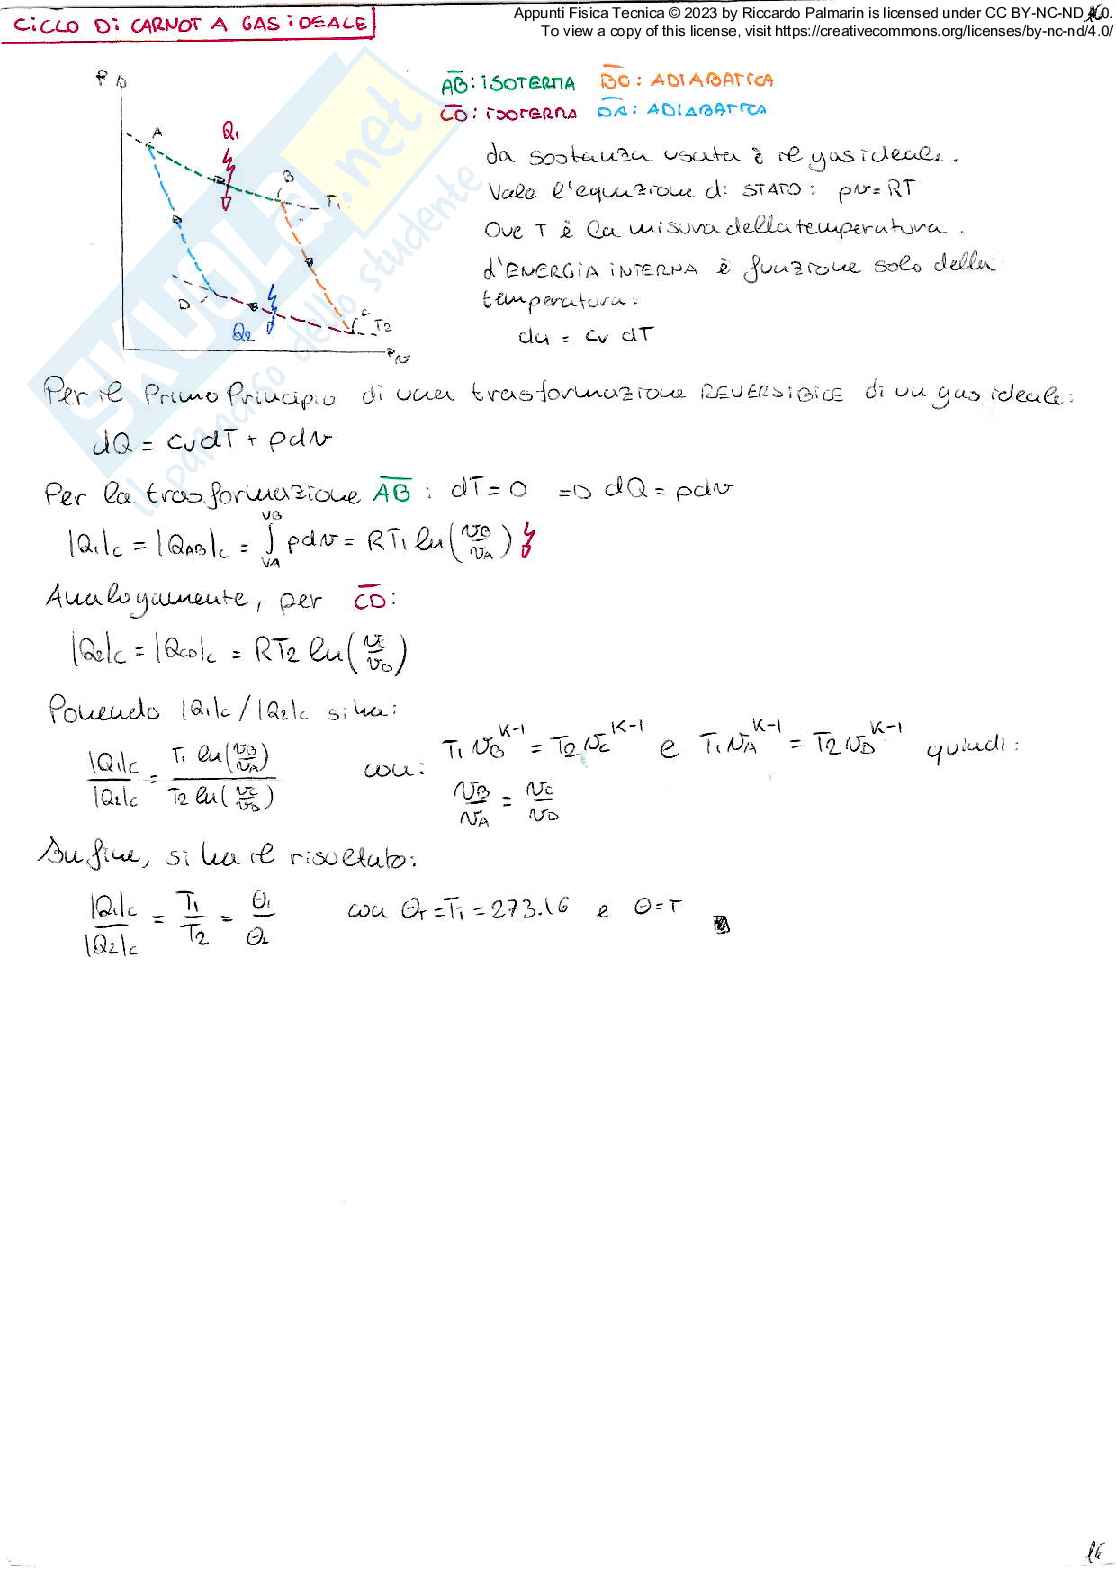 Appunti Fisica Tecnica © 2023 by Riccardo Palmarin is licensed under CC BY-NC-ND 4.0.
To view a copy of this license, visit https://creativecommons.org/licenses/by-nc-nd/4.0/
CICLO Di CARNOT A GAS iDEALE
AB: iSOTERMA BC: ADIABATICA
CD: iSOTERMA DA: ADIABATICA
P
A
Q₁
B
T₁
D
Q₂
C
T₂
v
La sostanza usata è il gas ideale.
Vale l'equazione di STATO: pv=RT
Ove T è la misura della temperatura.
L'ENERGIA iNTERNA è funzione solo della
temperatura:
du = cv dT
Per il Primo Principio di una trasformazione REVERSIBILE di un gas ideale:
dQ = cvdT + pdv
Per la trasformazione AB: dT=0 => dQ=pdv
|Q₁|c = |QAB|c = ∫ VA VB pdv = RT₁ ln(vB/vA)
Analogamente, per CD:
|Q₂|c = |QCD|c = RT₂ ln(vC/vD)
Ponendo |Q₁|c/|Q₂|c si ha:
|Q₁|c/|Q₂|c = T₁ ln(vB/vA) / T₂ ln(vC/vD) con: T₁vB^K-1 = T₂vC^K-1 e T₁vA^K-1 = T₂vD^K-1 quindi:
vB/vA = vC/vD
Infine, si ha il risultato:
|Q₁|c/|Q₂|c = T₁/T₂ = θ₁/θ₂ con θT=T₁=273.16 e θ=T
SKUOLA.net
il paradiso dello studente